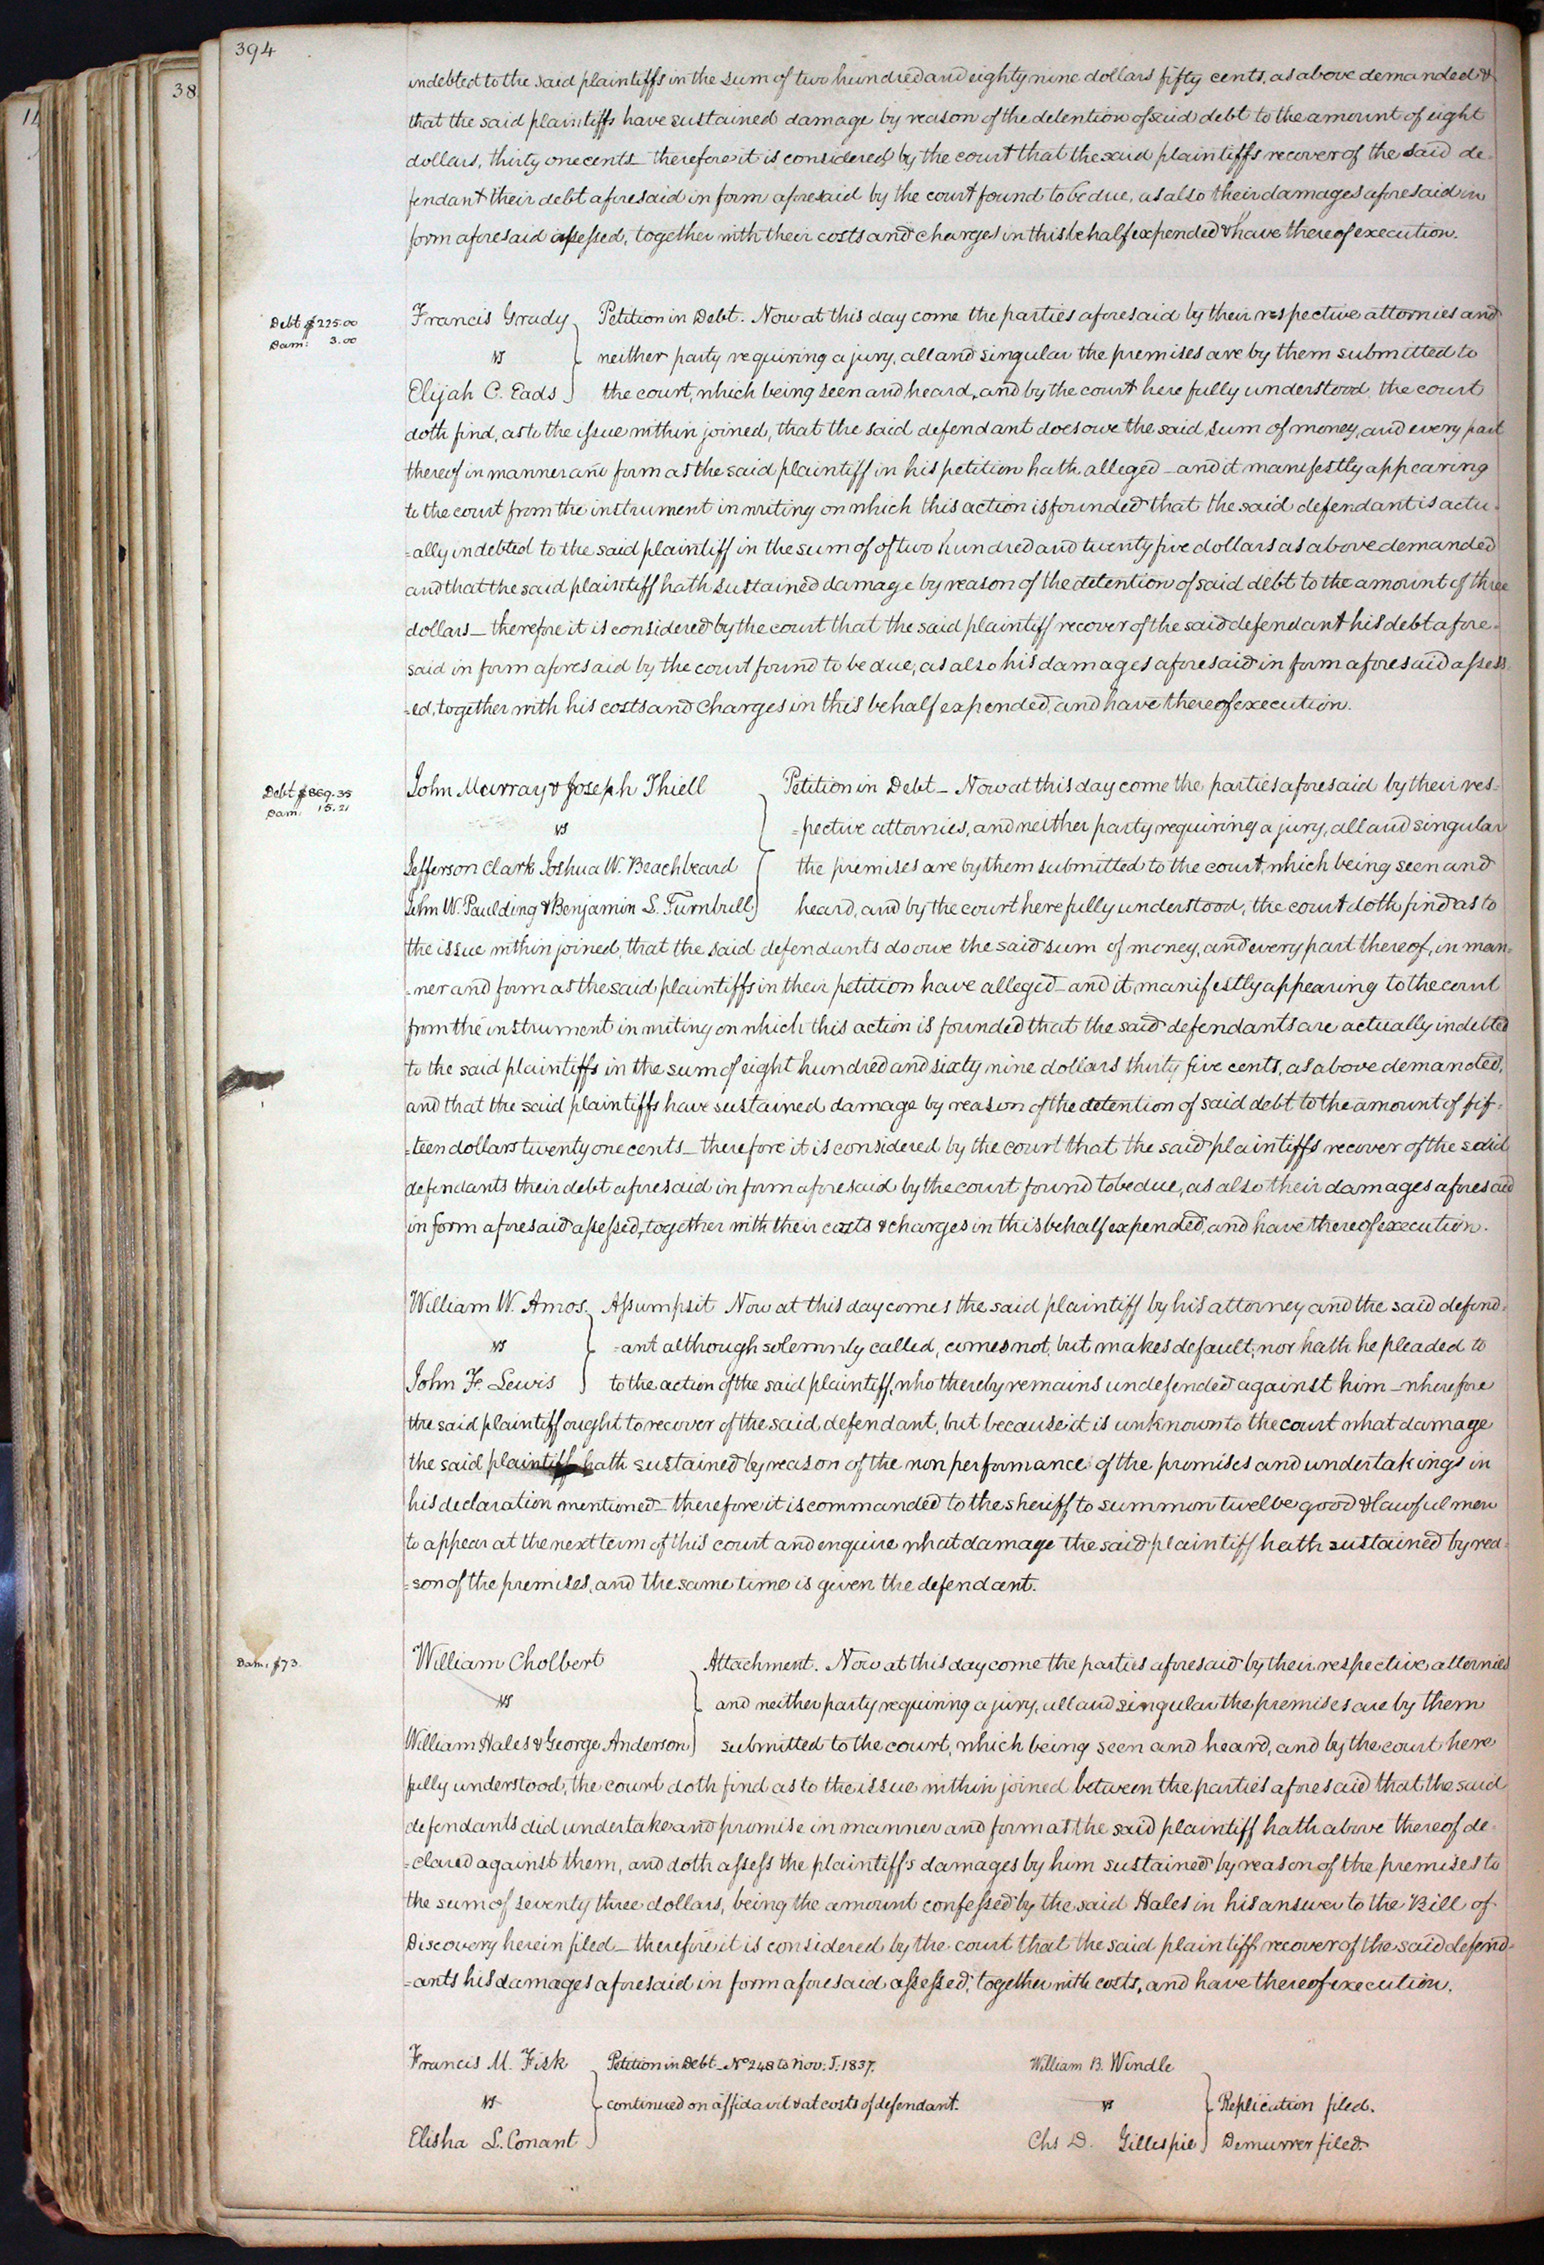 394
38
11
indebted to the said plaintiffs in the sum of two hundred and eighty nine dollars fifty cents, as above demanded &
that the said plaintiffs have sustained damage by reason of the detention of said debt to the amount of eight
dollars, thirty one cents_ therefore it is considered by the court that the said plaintiffs recover of the said de-
fendant their debt aforesaid in form aforesaid by the court found to be due, as also their damages aforesaid in
form aforesaid assessed, together with their costs and charges in this behalf expended & have thereof execution.
Debt $225.00
Dam: 3.00
Francis Grady } Petition in Debt. Now at this day come the parties aforesaid by their respective attornies and
vs } neither party requiring a jury, all and singular the premises are by them submitted to
Elijah C. Eads } the court, which being seen and heard, and by the court here fully understood, the court
doth find, as to the issue within joined, that the said defendant does owe the said sum of money, and every part
thereof in manner and form as the said plaintiff in his petition hath alleged_ and it manifestly appearing
to the court from the instrument in writing on which this action is founded that the said defendant is actu-
=ally indebted to the said plaintiff in the sum of of two hundred and twenty five dollars as above demanded
and that the said plaintiff hath sustained damage by reason of the detention of said debt to the amount of three
dollars_ therefore it is considered by the court that the said plaintiff recover of the said defendant his debt afore-
said in form aforesaid by the court found to be due, as also his damages aforesaid in form aforesaid assess-
=ed, together with his costs and charges in this behalf expended, and have thereof execution.
Debt $869.35
Dam: 15.21
John Murray & Joseph Thiell } Petition in Debt_ Now at this day come the parties aforesaid by their res=
vs } =pective attornies, and neither party requiring a jury, all and singular
Jefferson Clark Joshua W. Beachbeard } the premises are by them submitted to the court, which being seen and
John W. Paulding & Benjamin L. Turnbull } heard, and by the court here fully understood, the court doth find as to
the issue within joined, that the said defendants do owe the said sum of money, and every part thereof, in man=
=ner and form as the said plaintiffs in their petition have alleged_ and it manifestly appearing to the court
from the instrument in writing on which this action is founded that the said defendants are actually indebted
to the said plaintiffs in the sum of eight hundred and sixty nine dollars thirty five cents, as above demanded,
and that the said plaintiffs have sustained damage by reason of the detention of said debt to the amount of fif=
=teen dollars twenty one cents_ therefore it is considered by the court that the said plaintiffs recover of the said
defendants their debt aforesaid in form aforesaid by the court found to be due, as also their damages aforesaid
in form aforesaid assessed, together with their costs & charges in this behalf expended, and have thereof execution.
William W. Amos } Assumpsit Now at this day comes the said plaintiff by his attorney and the said defend=
vs } =ant although solemnly called, comes not, but makes default; nor hath he pleaded to
John F. Lewis } to the action of the said plaintiff, who thereby remains undefended against him_ wherefore
the said plaintiff ought to recover of the said defendant, but because it is unknown to the court what damage
the said plaintiff hath sustained by reason of the non performance of the promises and undertakings in
his declaration mentioned_ therefore it is commanded to the sheriff to summon twelve good & lawful men
to appear at the next term of this court and enquire what damage the said plaintiff hath sustained by rea=
=son of the premises, and the same time is given the defendant.
Dam: $73.
William Cholbert } Attachment. Now at this day come the parties aforesaid by their respective attornies
vs } and neither party requiring a jury, all and singular the premises are by them
William Hales & George Anderson } submitted to the court, which being seen and heard, and by the court here
fully understood, the court doth find as to the issue within joined between the parties aforesaid that the said
defendants did undertake and promise in manner and form as the said plaintiff hath above thereof de-
=clared against them, and doth assess the plaintiff's damages by him sustained by reason of the premises to
the sum of seventy three dollars, being the amount confessed by the said Hales in his answer to the Bill of
Discovery herein filed_ therefore it is considered by the court that the said plaintiff recover of the said defend=
=ants his damages aforesaid in form aforesaid assessed, together with costs, and have thereof execution.
Francis M. Fisk } Petition in Debt_ No 248 to Nov: T. 1837.
vs } continued on affidavit & at costs of defendant.
Elisha L. Conant }
William B. Windle
vs } Replication filed.
Chs D. Gillespie } Demurrer filed.